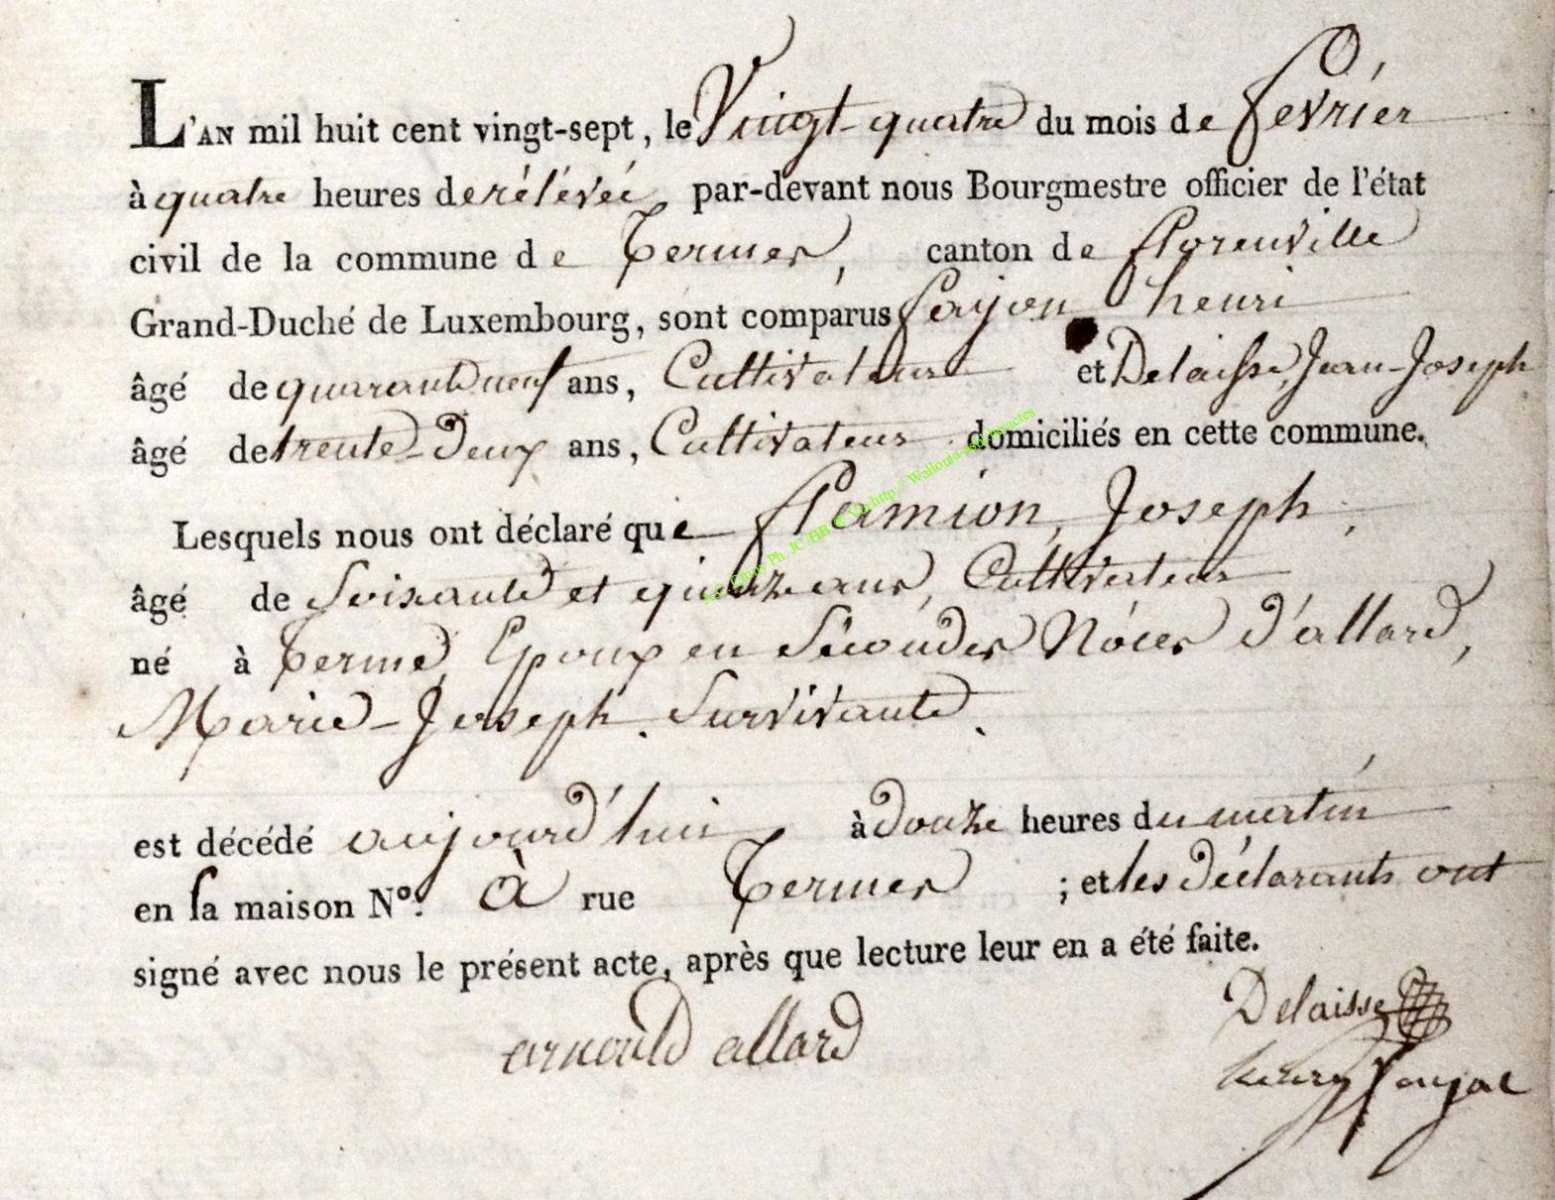 L'AN mil huit cent vingt-sept, le Vingt-quatre du mois de fevrier
à quatre heures de rélévée par-devant nous Bourgmestre officier de l'état
civil de la commune de Termes, canton de florenville
Grand-Duché de Luxembourg, sont comparus henri
âgé de quarante neuf ans, Cultivateur et Delaisse, Jean-Joseph
âgé de trente-Deux ans, Cultivateur domiciliés en cette commune.
Lesquels nous ont déclaré que flamion, Joseph,
âgé de Soixante et quinze ans, Cultivateur
né à Terme, Epoux en Sécondes Nóces d'allard,
Marie-Joseph. Survivante.
est décédé aujourd'hui à douze heures du matin
en sa maison N.º à rue Termes ; et les déclarants ont
signé avec nous le présent acte, après que lecture leur en a été faite.
arnould allard
Delaisse
henry